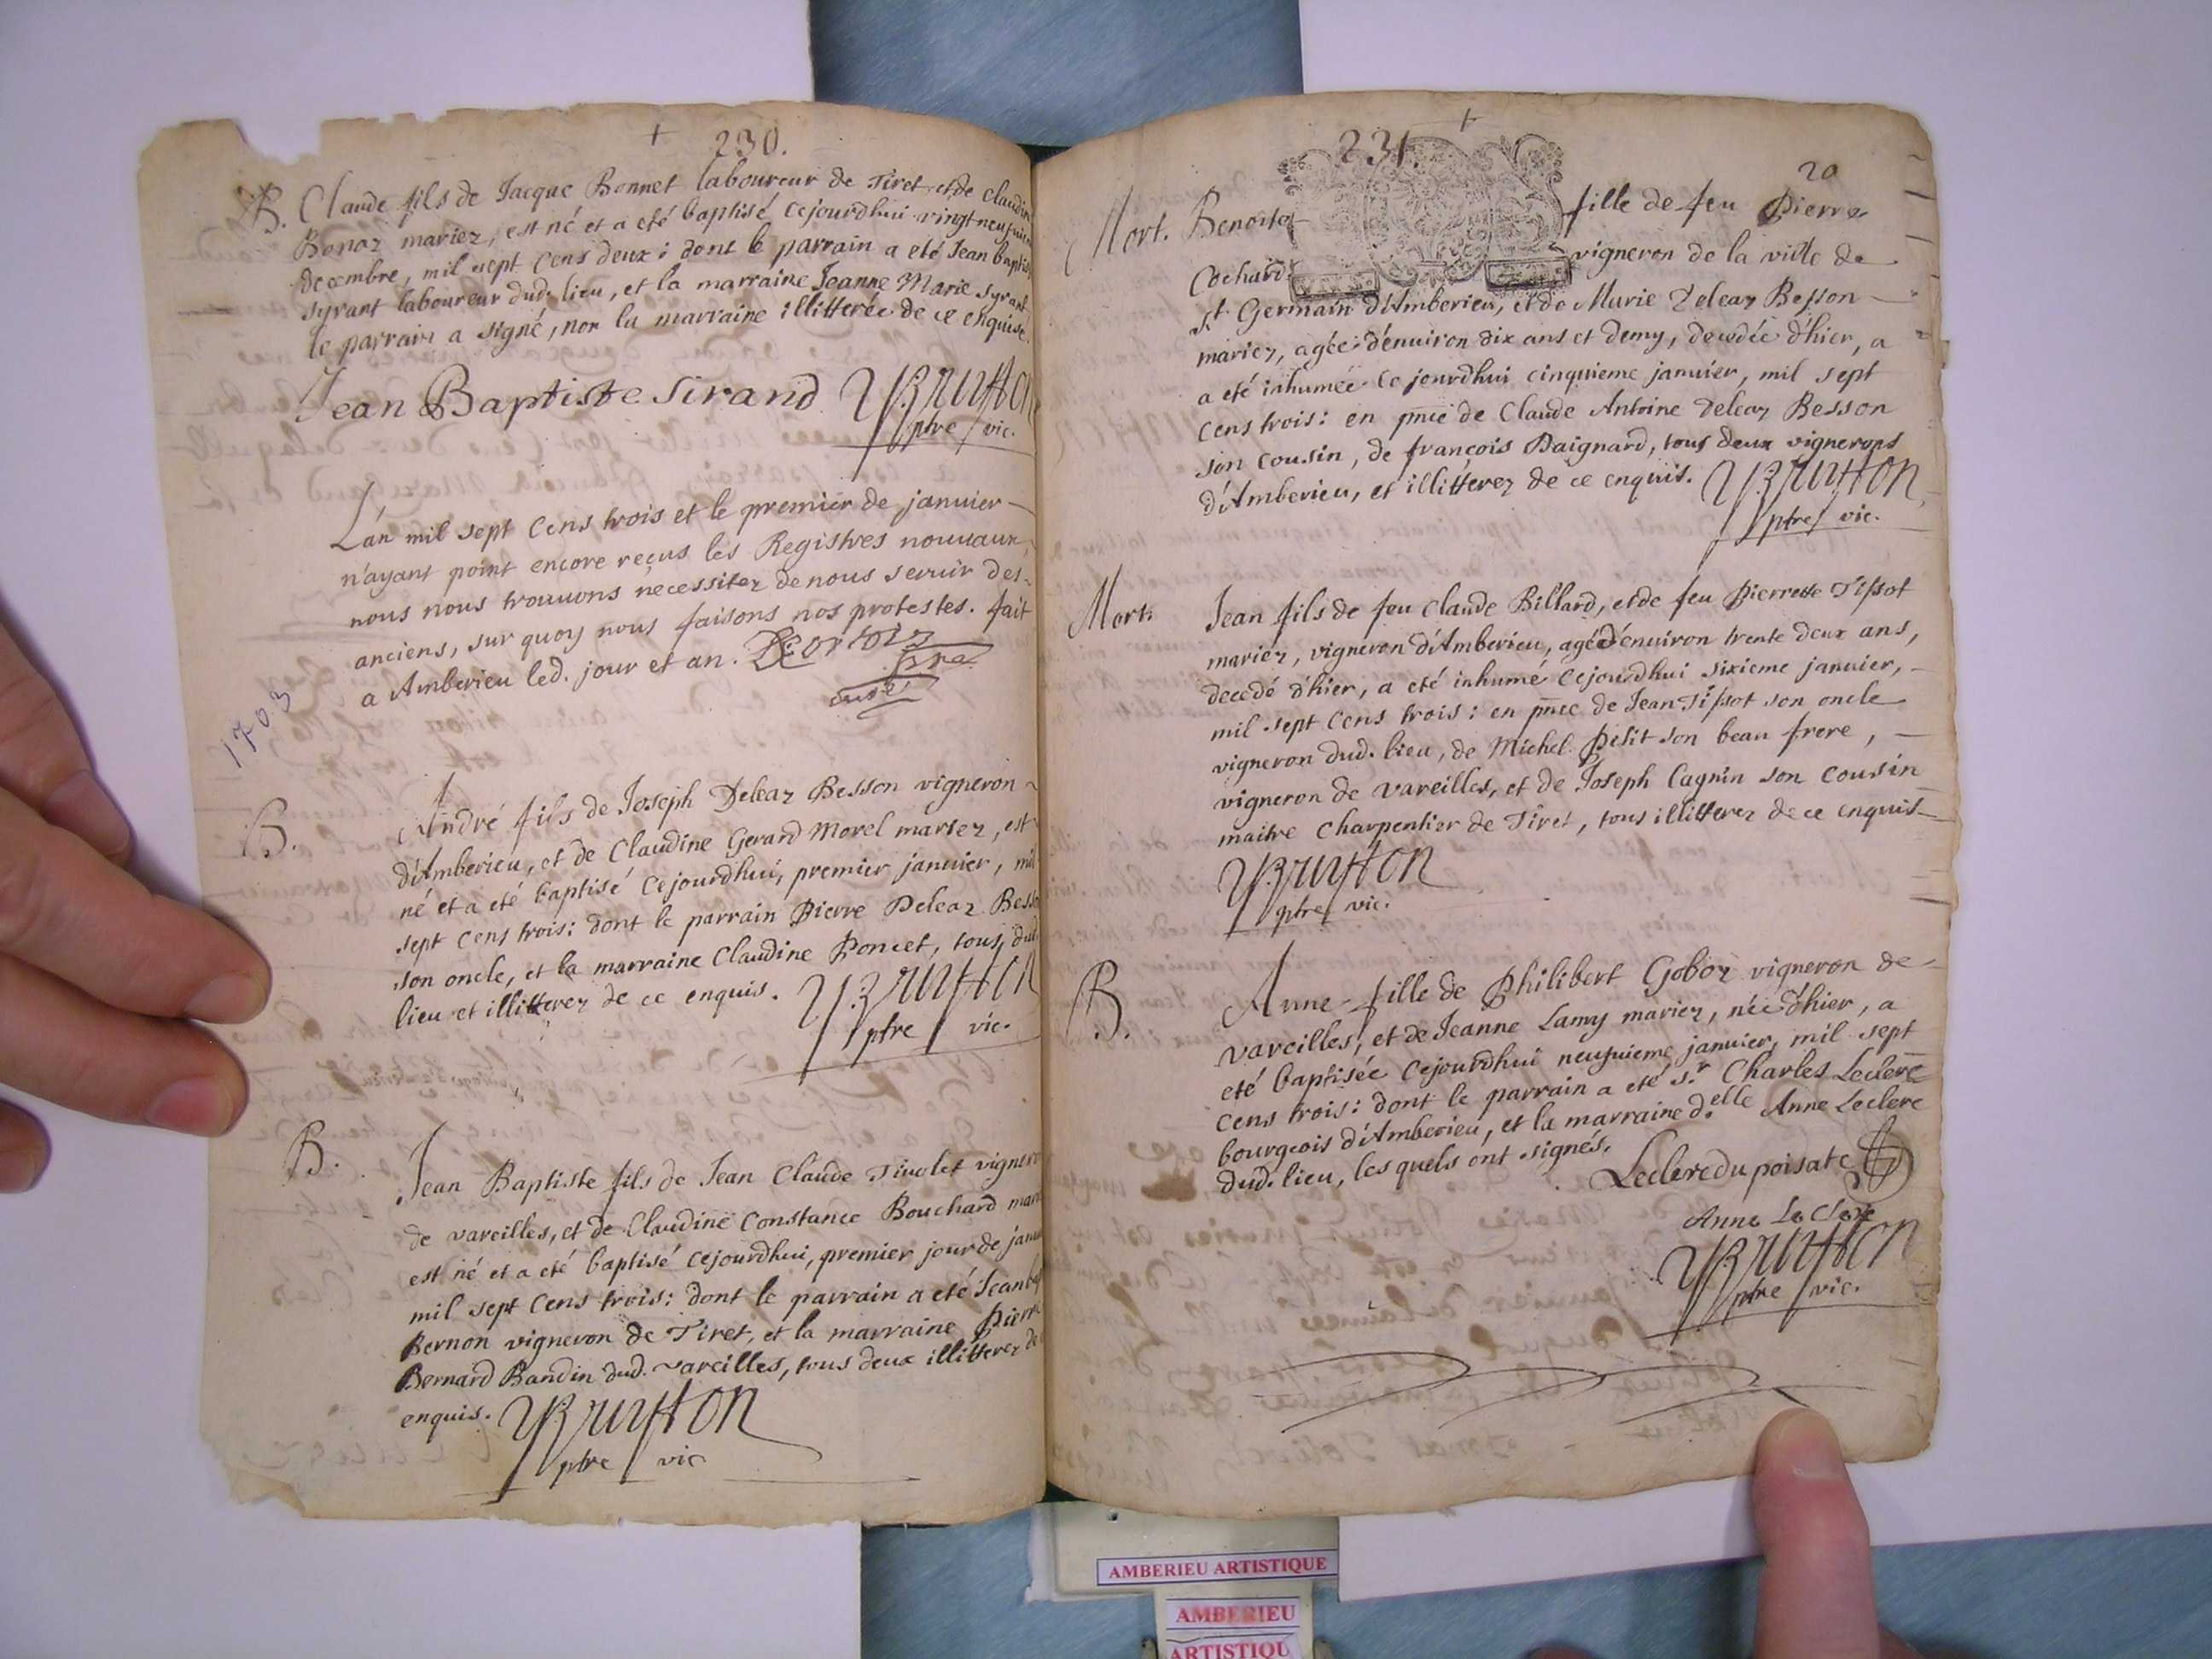 + 230.
B. Claude fils de Jacque Bonnet laboureur de Tiret, et de Claudine
Bonaz mariez, est né et a eté baptisé cejourdhui vingtneufuieme
decembre, mil sept cens deux : dont le parrain a eté Jean baptiste
syrant laboureur dud. lieu, et la marraine Jeanne Marie syrant
le parrain a signé, non la marraine illitterée de ce enquise.
Jean Baptiste Sirand Bruyton
ptre vic.
L'an mil sept cens trois et le premier de januier
n'ayant point encore reçus les Registres nouueaux,
nous nous trouuons necessitez de nous seruir des
anciens, sur quoy nous faisons nos protestes. fait
a Amberieu led. jour et an.
curé
1703
B. André fils de Joseph Deleaz Besson vigneron
d'Amberieu, et de Claudine Gerard Morel mariez, est
né et a eté baptisé cejourdhui, premier januier, mil
sept cens trois : dont le parrain Pierre Deleaz Besson
son oncle, et la marraine Claudine Poncet, tous dud.
lieu et illitterez de ce enquis. Bruyton
ptre vic.
B. Jean Baptiste fils de Jean Claude Tiuolet vigneron
de vareilles, et de Claudine Constance Bouchard mariez
est né et a eté baptisé cejourdhui, premier jour de januier
mil sept cens trois : dont le parrain a eté Jean bap
Bernon vigneron de Tiret, et la marraine Pierre
Bernard Bandin dud. vareilles, tous deux illitterez de ce
enquis. Bruyton
ptre vic
231. +
20
Mort. Benoite fille de feu Pierre
Cochard vigneron de la ville de
st. Germain d'Amberieu, et de Marie Deleaz Besson
mariez, agée d'enuiron dix ans et demy, decedée d'hier, a
a eté inhumée cejourdhui cinquieme januier, mil sept
cens trois : en pñce de Claude Antoine Deleaz Besson
son cousin, de françois Paignard, tous deux vignerons
d'Amberieu, et illitterez de ce enquis. Bruyton
ptre vic.
Mort. Jean fils de feu Claude Billard, et de feu Pierrette Tissot
mariez, vigneron d'Amberieu, agé d'enuiron trente deux ans,
decedé d'hier, a eté inhumé cejourdhui sixieme januier,
mil sept cens trois : en pñce de Jean Tissot son oncle
vigneron dud. lieu, de Michel Petit son beau frere,
vigneron de vareilles, et de Joseph Cagnin son cousin
maitre charpentier de Tiret, tous illitterez de ce enquis
Bruyton
ptre vic.
B. Anne fille de Philibert Goboz vigneron de
vareilles, et de Jeanne Lamy mariez, née d'hier, a
eté baptisée cejourdhui neufuieme januier, mil sept
cens trois : dont le parrain a eté s.r Charles Leclerc
bourgeois d'Amberieu, et la marraine d.elle Anne Leclerc
dud. lieu, lesquels ont signés.
Leclerc du poisate
Anne Le Clerc
Bruyton
ptre vic.
AMBERIEU ARTISTIQUE
AMBERIEU
ARTISTIQU